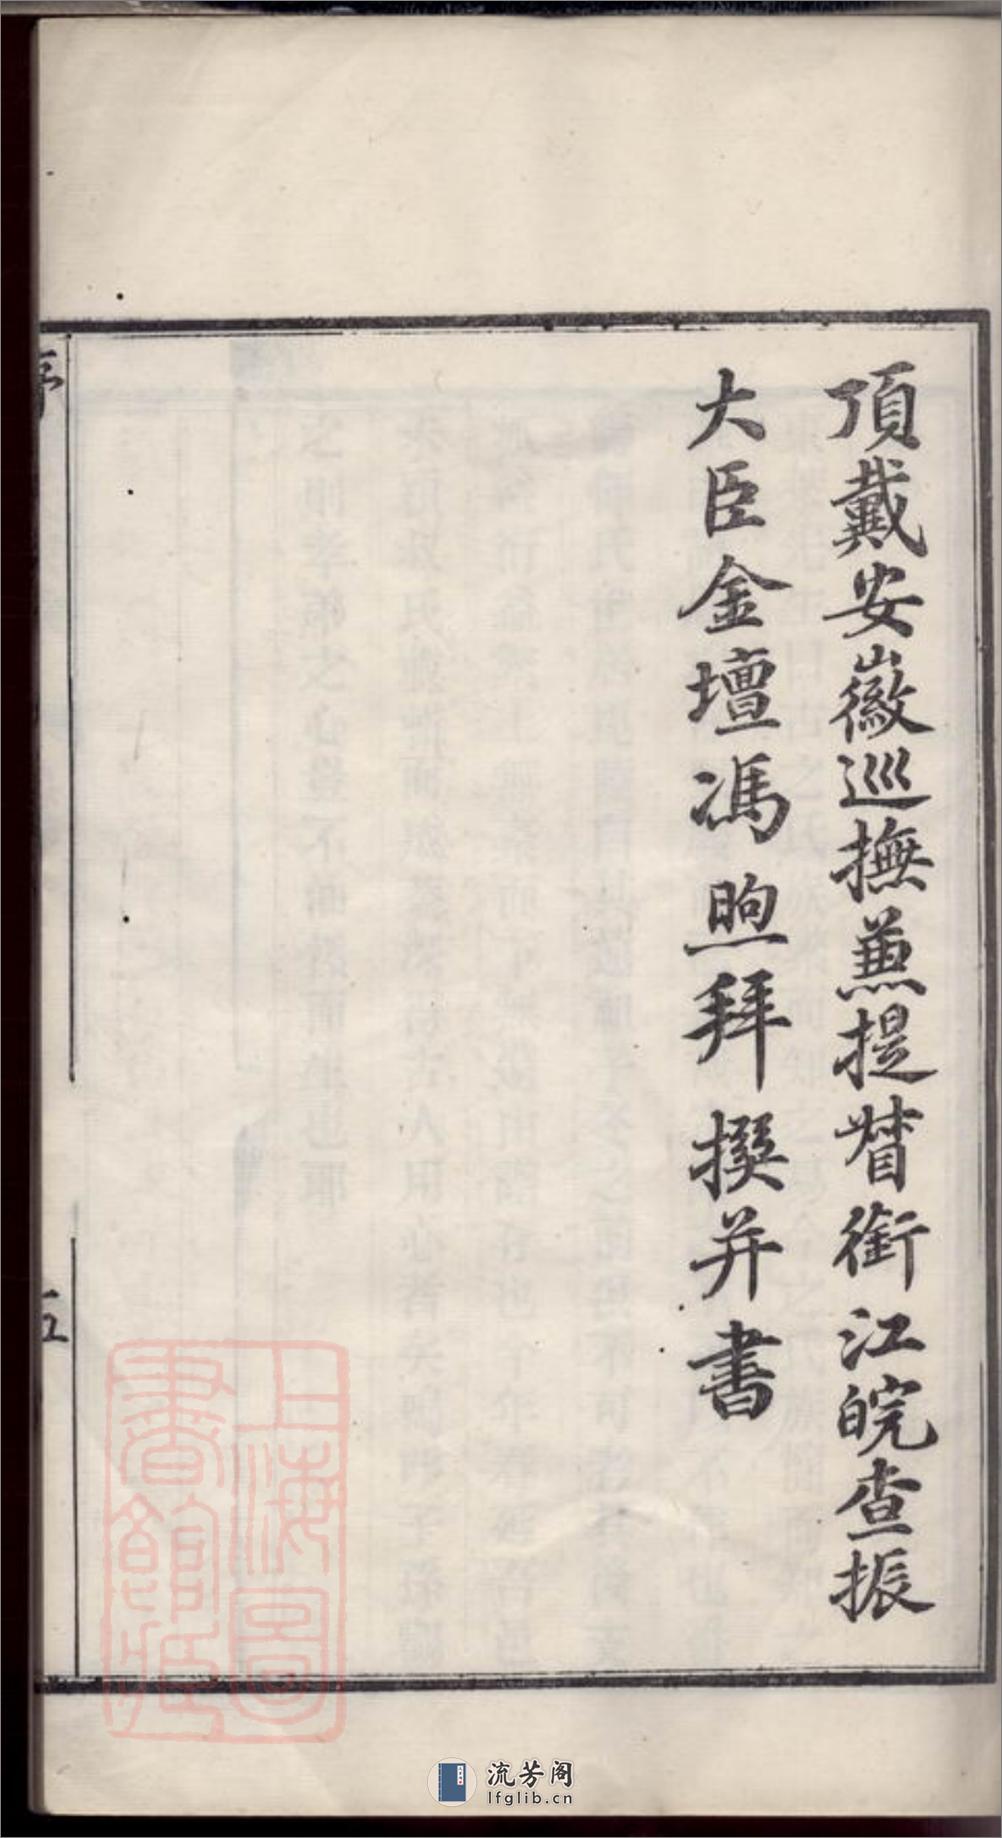 頂戴安徽巡撫兼提督銜江皖查振
大臣金壇馮煦拜撰并書
序
五
上海圖
書館藏
流芳阁
lfglib.cn